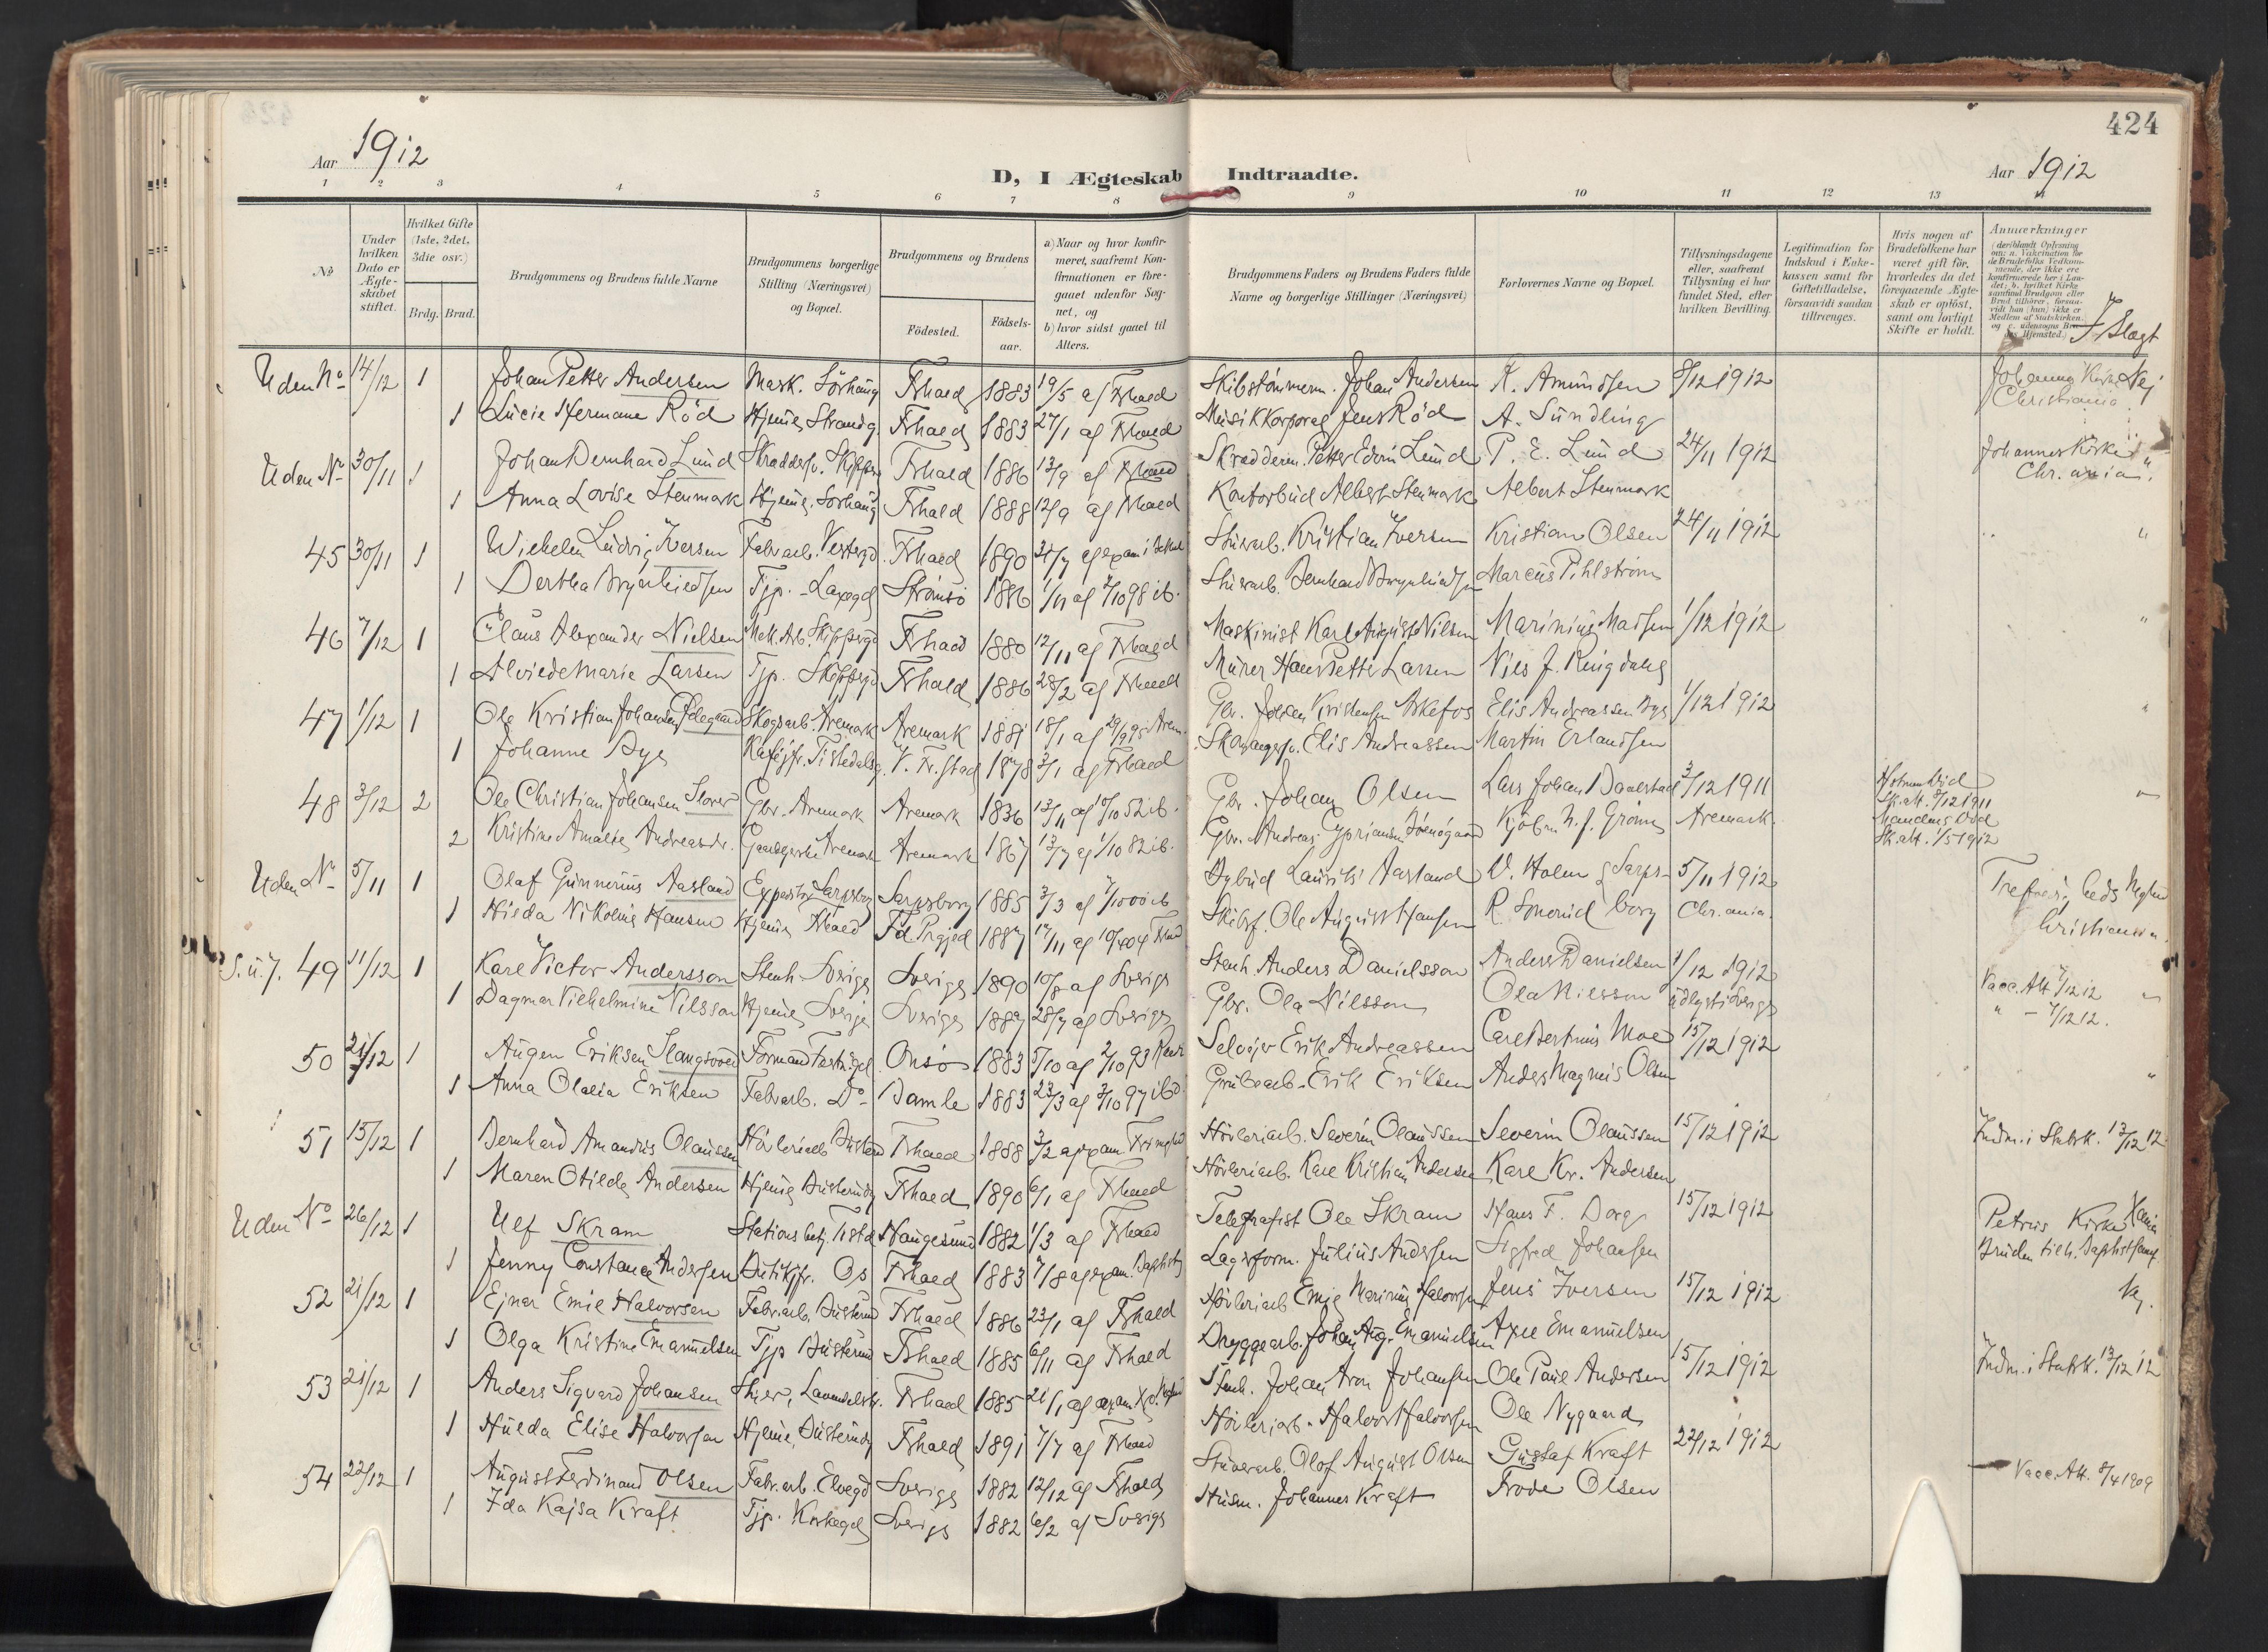 424
Aar 1912
D, I Ægteskab Indtraadte.
Aar 1912
1 2 3 4 5 6 7 8 9 10 11 12 13 14
No
Under hvilken Dato er Ægteskabet stiftet.
Hvilket Gifte (1ste, 2det, 3die osv.)
Brdg. Brud.
Brudgommens og Brudens fulde Navne
Brudgommens borgerlige Stilling (Næringsvei) og Bopæl.
Brudgommens og Brudens
Fødested.
Fødselsaar.
a) Naar og hvor konfirmeret, saafremt Konfirmationen er foregaaet udenfor Sognet, og
b) hvor sidst gaaet til Alters.
Brudgommens Faders og Brudens Faders fulde Navne og borgerlige Stillinger (Næringsvei)
Forlovernes Navne og Bopæl.
Tillysningsdagene eller, saafremt Tillysning ei har fundet Sted, efter hvilken Bevilling.
Legitimation for Indskud i Enkekassen samt for Giftetilladelse, forsaavidt saadan tiltrænges.
Hvis nogen af Brudefolkene har været gift før, hvorledes da det foregaaende Ægteskab er opløst, samt om lovligt Skifte er holdt.
Anmærkninger
I Slægt
Uden No 14/12 1 Johan Petter Andersen Mask. Sörhaug Frhald 1883 19/5 af Frhald Skibstømmerm. Johan Andersen K. Amundsen 8/12 1912 Johannes Kirke Nej
1 Lucie Hermane Röd Hjemme Strandg. Frhald 1883 27/1 af Frhald Musikkorporal Jens Röd A. Sundling Christiania
Uden No 30/11 1 Johan Bernhard Lund Skræddersv. Frhald 1886 13/9 af Frhald Skrædderm. Petter Edvin Lund P. E. Lund 24/11 1912 Johannes Kirke "
1 Anna Lovise Stenmark Hjemme Sörhaug Frhald 1888 12/9 af Frhald Kontorbud Albert Stenmark Albert Stenmark Chr.ania.
45 30/11 1 Wilhelm Ludvig Iversen Fabrarb. Vestergd. Frhald 1890 Stuerarb. Kristian Iversen Kristian Olsen 24/11 1912 "
1 Bertha Brynhildsen Tjp. Laxegd Strömsö 1886 1/11 af 2/10 98 ib. Stuerarb. Bernhard Brynhildsen Marcus Pihlström
46 7/12 1 Claus Alexander Nielsen Mek. Arb. Skippergd Frhald 1880 12/11 af Frhald Maskinist Karl August Nilsen Marinius Madsen 1/12 1912 "
1 Alvide Marie Larsen Tjp. Skippergd Frhald 1886 28/2 af Frhald Murer Hans Petter Larsen Nils J. Ringdahl
47 1/12 1 Ole Kristian Johansen Ødegaard Skogsarb. Aremark Aremark 1881 18/1 af 29/9 95 Arem. Gbr. Johan Kristensen Askefos Elis Andreassen Bye 1/12 1912 "
1 Johanne Bye Kaféjfr. Tistedalsg. V. Fr.stad 1878 3/1 af Frhald Skomagersv. Elis Andreassen Martin Erlandsen
48 3/12 2 Ole Christian Johansen Slorer Gbr. Aremark Aremark 1836 13/11 af 10/10 52 ib. Gbr. Johan Olsen Lars Johan Daalestad 3/12 1911 Konen Död "
Sk.att. 8/12 1911
2 Kristine Amalie Andreasdr. Gaardgerske Aremark Aremark 1867 13/7 af 1/10 82 ib. Gbr. Andreas Cypriansen Kjöbm. N. J. Grönn Aremark. Manden Död
Sk.att. 1/5 1912
Uden No 5/11 1 Olaf Gunnerius Aasland Sarpsborg Sarpsborg 1885 3/3 af 7/10 00 ib Bybud Laurits Aasland O. Holm Sarps- 5/11 1912 Trefoldigheds Mghd
1 Hilda Nikoline Hansen Hjemme Frhald Fd Prgjed 1887 17/11 af Skibsf. Ole August Hansen R. Smerud borg Chr.ania. Christiania.
S.u.7. 49 11/12 1 Karl Victor Andersson Stenh. Sverige Sverige 1890 10/8 af Sverige Stenh. Anders Danielsson Anders Danielsen 1/12 1912 Vacc. Att. 7/12 12 "
1 Dagmar Vilhelmine Nilsson Hjemme Sverige Sverige 1889 28/7 af Sverige Gbr. Ola Nilsson Ola Nilsson udlyst i Sverige " – 7/12 12.
50 21/12 1 Augen Eriksen Slangsvold Formand Fastingsgd. Onsö 1883 5/10 af 2/10 93 Selveier Erik Andreassen Carl Bertinius Moe 15/12 1912
1 Anna Olalia Eriksen Fabrarb. Do Bamle 1883 23/3 af 3/10 97 ibd. Grubearb. Erik Eriksen Anders Magnus Olsen "
51 15/12 1 Bernhard Amandus Olaussen Hövleriarb. Busterud Frhald 1888 Hövleriarb. Severin Olaussen Severin Olaussen 15/12 1912 Indm. i Statsk. 13/12 12
1 Maren Otilde Andersen Hjemme Busterudg Frhald 1890 6/1 af Frhald Hövleriarb. Karl Kristian Andersen Karl Kr. Andersen
Uden No 26/12 1 Ulf Skram Stationsbetj. Tistd. Haugesund 1882 1/3 af Frhald Telegrafist Ole Skram Hans F. Dorg 15/12 1912 Petrus Kirke Kania
1 Jenny Constance Andersen Butikjfr. Os Frhald 1883 Lagerform. Julius Andersen Sigfred Johansen Bruden tilh. Baptistsamf.
52 21/12 1 Ejnar Emil Halvorsen Fabrarb. Busterud Frhald 1886 23/1 af Frhald Hövleriarb Emil Marinius Halvorsen Jens Iversen 15/12 1912 Nej.
1 Olga Kristine Emanuelsen Tjp Busterud Frhald 1885 6/11 af Frhald Bryggearb. Johan Aug. Emanuelsen Axel Emanuelsen
53 21/12 1 Anders Sigvard Johansen Stuer, Frhald 1885 Stenh. Johan Aron Johansen Ole Paul Andersen 15/12 1912 Indm. i Statsk. 13/12 12
1 Hulda Elise Halvorsen Hjemme, Busterudg Frhald 1891 7/7 af Frhald Hövleriarb. Halvor Halvorsen Ole Nygaard
54 22/12 1 August Ferdinand Olsen Fabr.arb. Elvegd Sverige 1882 12/12 af Frhald Stuerarb. Olof August Olsen Gustaf Kraft 22/12 1912 – Vacc. Att. 8/4 1909
1 Ida Kajsa Kraft Tjp. Kirkegd Sverige 1882 6/2 af Sverige Husm. Johannes Kraft Frode Olsen